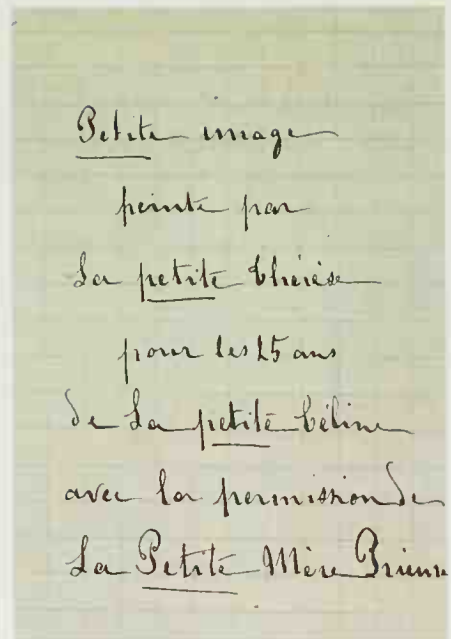 Petite image
peinte par
La petite Thérèse
pour les 25 ans
de La petite Céline
avec la permission de
La Petite Mère Prieure